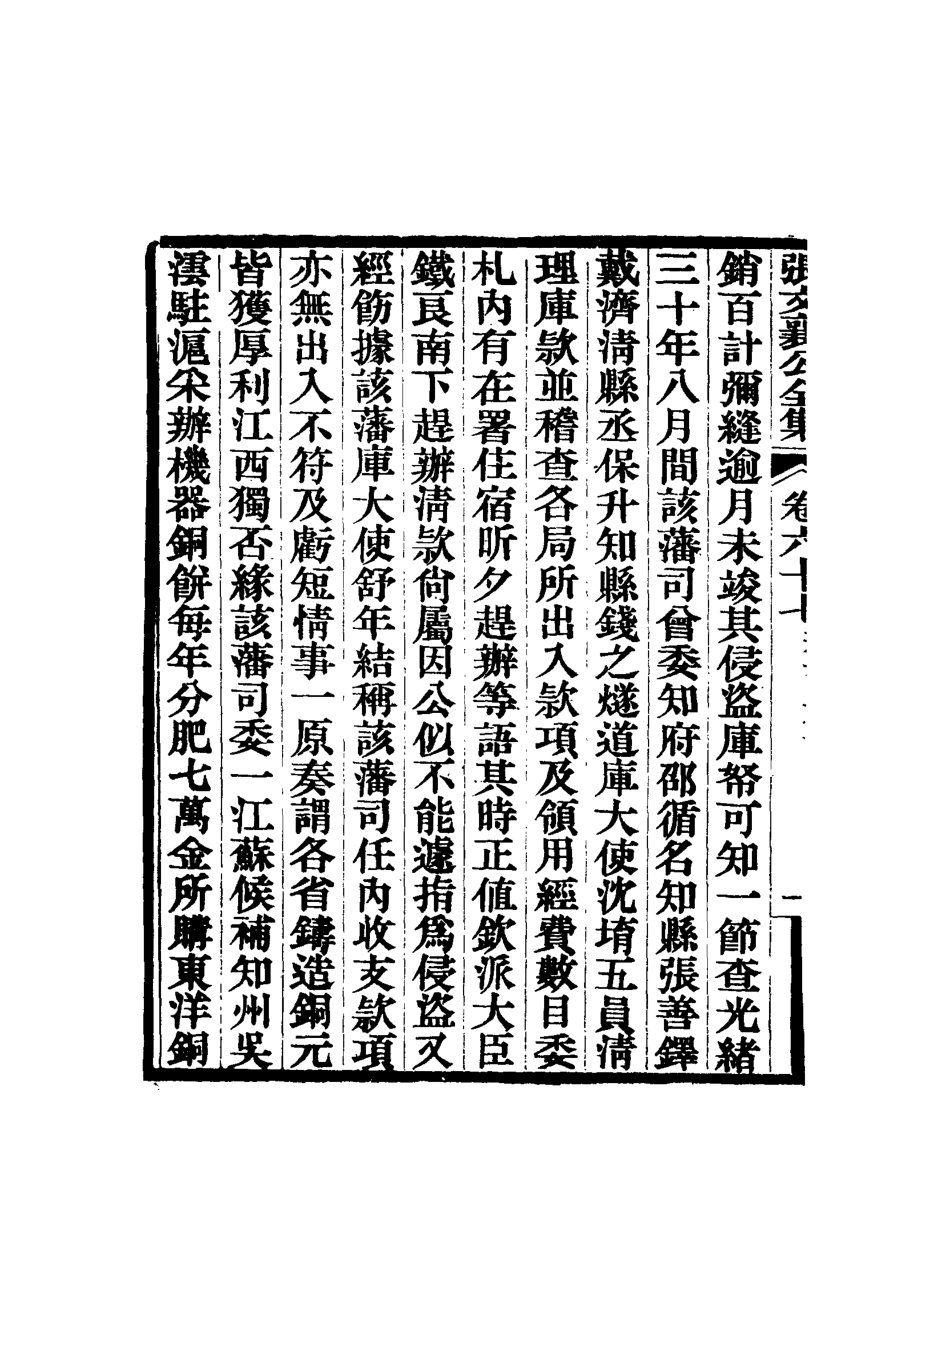 張文襄公全集 卷六十七
銷百計彌縫逾月未竣其侵盜庫帑可知一節查光緒
三十年八月間該藩司曾委知府邵循名知縣張善鐸
戴濟清縣丞保升知縣錢之燧道庫大使沈堉五員清
理庫款並稽查各局所出入款項及領用經費數目委
札內有在署住宿昕夕趕辦等語其時正值欽派大臣
鐵良南下趕辦清款尙屬因公似不能遽指爲侵盜又
經飭據該藩庫大使舒年結稱該藩司任內收支款項
亦無出入不符及虧短情事一原奏謂各省鑄造銅元
皆獲厚利江西獨否緣該藩司委一江蘇候補知州吳
澐駐滬采辦機器銅餅每年分肥七萬金所購東洋銅